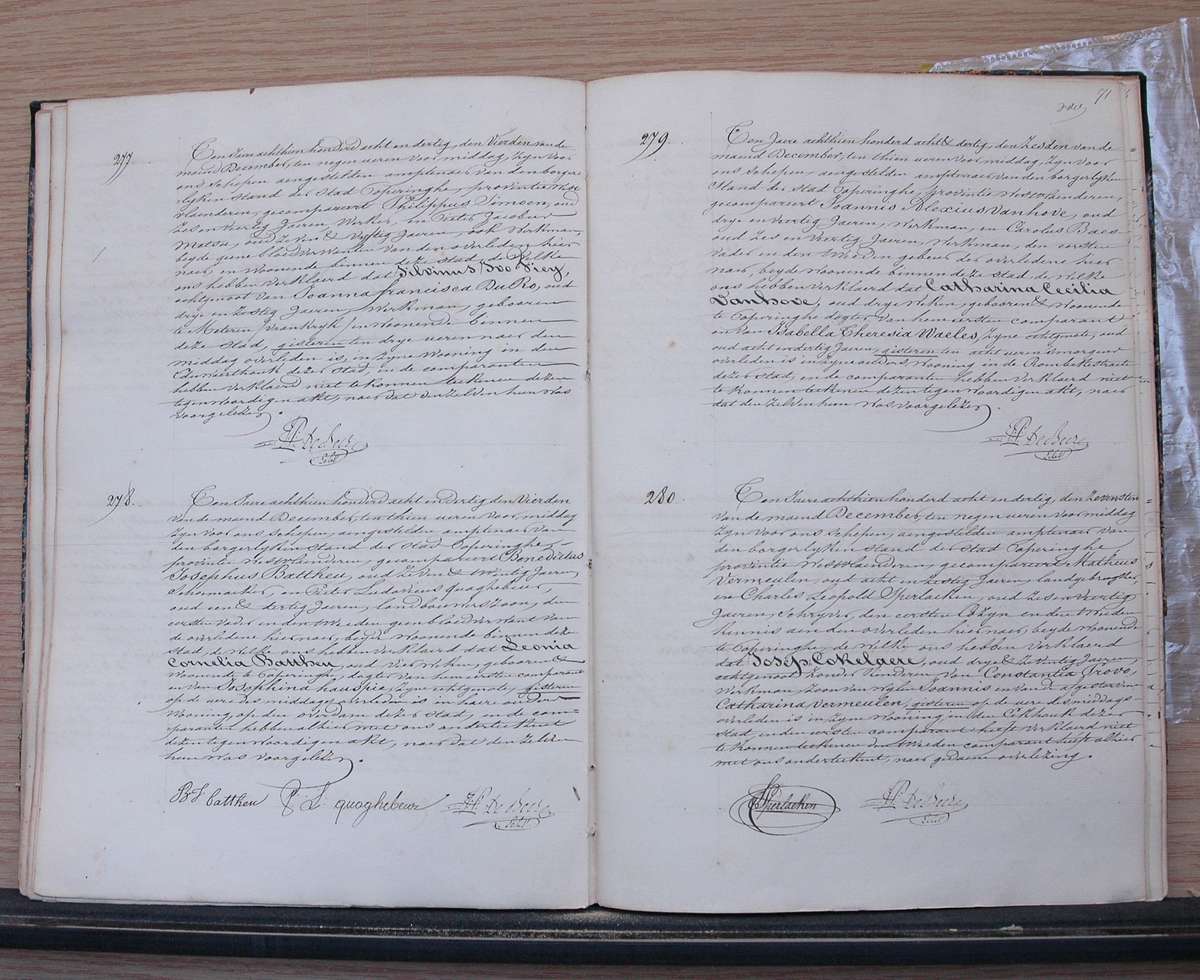 277.
Ten Jaere achthien honderd acht en dertig, den Vierden van de
maend December, ten negen ueren voor middag, zyn voor
ons schepen aengestelden amptenaer van den borger-
lyken stand der Stad Poperinghe, provintie West-
vlaenderen, gecompareert Philippus Timson, oud
zes en veertig Jaeren, Werker, en Pieter Jacobus
oud zeven & vyftig Jaeren, ook Werkman,
beyde geene bloedverwanten van den overleden hier
naer, en woonende binnen deze stad, de Welke
ons hebben verklaerd dat Silvinus Ivo Frey,
echtgenoot van Joanna francisca DuRo, oud
drye en zestig Jaeren, Werkman, gebooren
te Meteren (Vrankryk) en woonende binnen
deze stad, gisteren ten drye ueren naer den
middag overleden is, in zyne wooning in den
dezer stad en de comparanten
hebben verklaerd niet te konnen teekenen dezen
tegenwoordigen akt, naer dat den zelven hem was
voorgelezen.
278.
Ten Jaere achthien honderd acht en dertig den Vierden
van de maend December, ten thien ueren voor middag
zyn voor ons schepen, aengestelden amptenaer van
den borgerlyken stand der stad Poperinghe,
provintie Westvlaenderen, gecompareert Benedictus
Josephus Battheu, oud zeven & twintig Jaeren,
Schoenmaeker, en Pieter Ludovicus quaghebeur,
oud een & dertig Jaeren, landbouwers zoon, den
eersten vader en den tweeden geen bloedverwant van
de overledene hier naer, beyde woonende binnen deze
stad, de Welke ons hebben verklaerd dat Leonia
Cornelia Battheu, oud vier weken, gebooren &
woonende te Poperinghe, dogter van hem eersten comparant
en van Josephina hauspie, zyne echtgenote, gisteren
op de uere des middags overleden is in haere ouders
wooning op den overdam dezer Stad, en de com-
paranten hebben alhier met ons onderteekent
dezen tegenwoordigen akt, naer dat den zelven
hem was voorgelezen.
B J battheu P L quaghebeur
279.
Ten Jaere achthien honderd acht & dertig, den Zesden van de
maend December, ten thien ueren voor middag, zyn voor
ons schepen aengestelden amptenaer van den borgerlyken
Stand der stad Poperinghe, provintie Westvlaenderen,
gecompareert Joannis Alexius Vanhove, oud
drye en veertig Jaeren, Werkman, en Carolus Baes
oud zes en veertig Jaeren, Werkman, den eersten
vader en den tweeden gebuer der overledene hier
naer, beyde woonende binnen deze stad de Welke
ons hebben verklaerd dat Catharina Cecilia
Vanhove, oud drye weken, gebooren & woonende
te Poperinghe dogter van hem eersten comparant
en van Isabella Theresia Waeles, zyne echtgenote, oud
oud acht en dertig Jaeren, gisteren ten acht ueren smorgens
overleden is in zyne ouders wooning in de Rombeke straete
dezer stad, en de comparanten hebben verklaerd niet
te konnen teekenen dezen tegenwoordigen akt, naer
dat den zelven hem was voorgelezen.
280
Ten Jaere achthien honderd acht en dertig, den Zevensten
van de maend December, ten negen ueren voor middag
zyn voor ons schepen, aengestelden amptenaer van
den borgerlyken stand der stad Poperinghe
provintie Westvlaenderen, gecompareert Matheus
Vermeulen, oud acht en zestig Jaeren, landgebruyker,
en Charles Leopold Sperlaeken, oud zes en veertig
Jaeren, Schryver, den eersten Cozyn en den tweeden
kennis aen den overleden hier naer, beyde woonende
te Poperinghe, de Welke ons hebben verklaerd
dat Josep Cokelaere, oud drye & zeventig Jaeren,
echtgenoot zonder kinderen van Constantia Provo,
Werkman, zoon van wylen Joannis en van d'afgestorvene
Catharina Vermeulen, gisteren op de uere des middags
overleden is in zyne wooning in den Eekhoek dezer
Stad, en den eersten comparant heeft verklaerd niet
te konnen teekenen den tweeden comparant heeft alhier
met ons onderteekent, naer gedaene voorlezing.
Sperlaeken